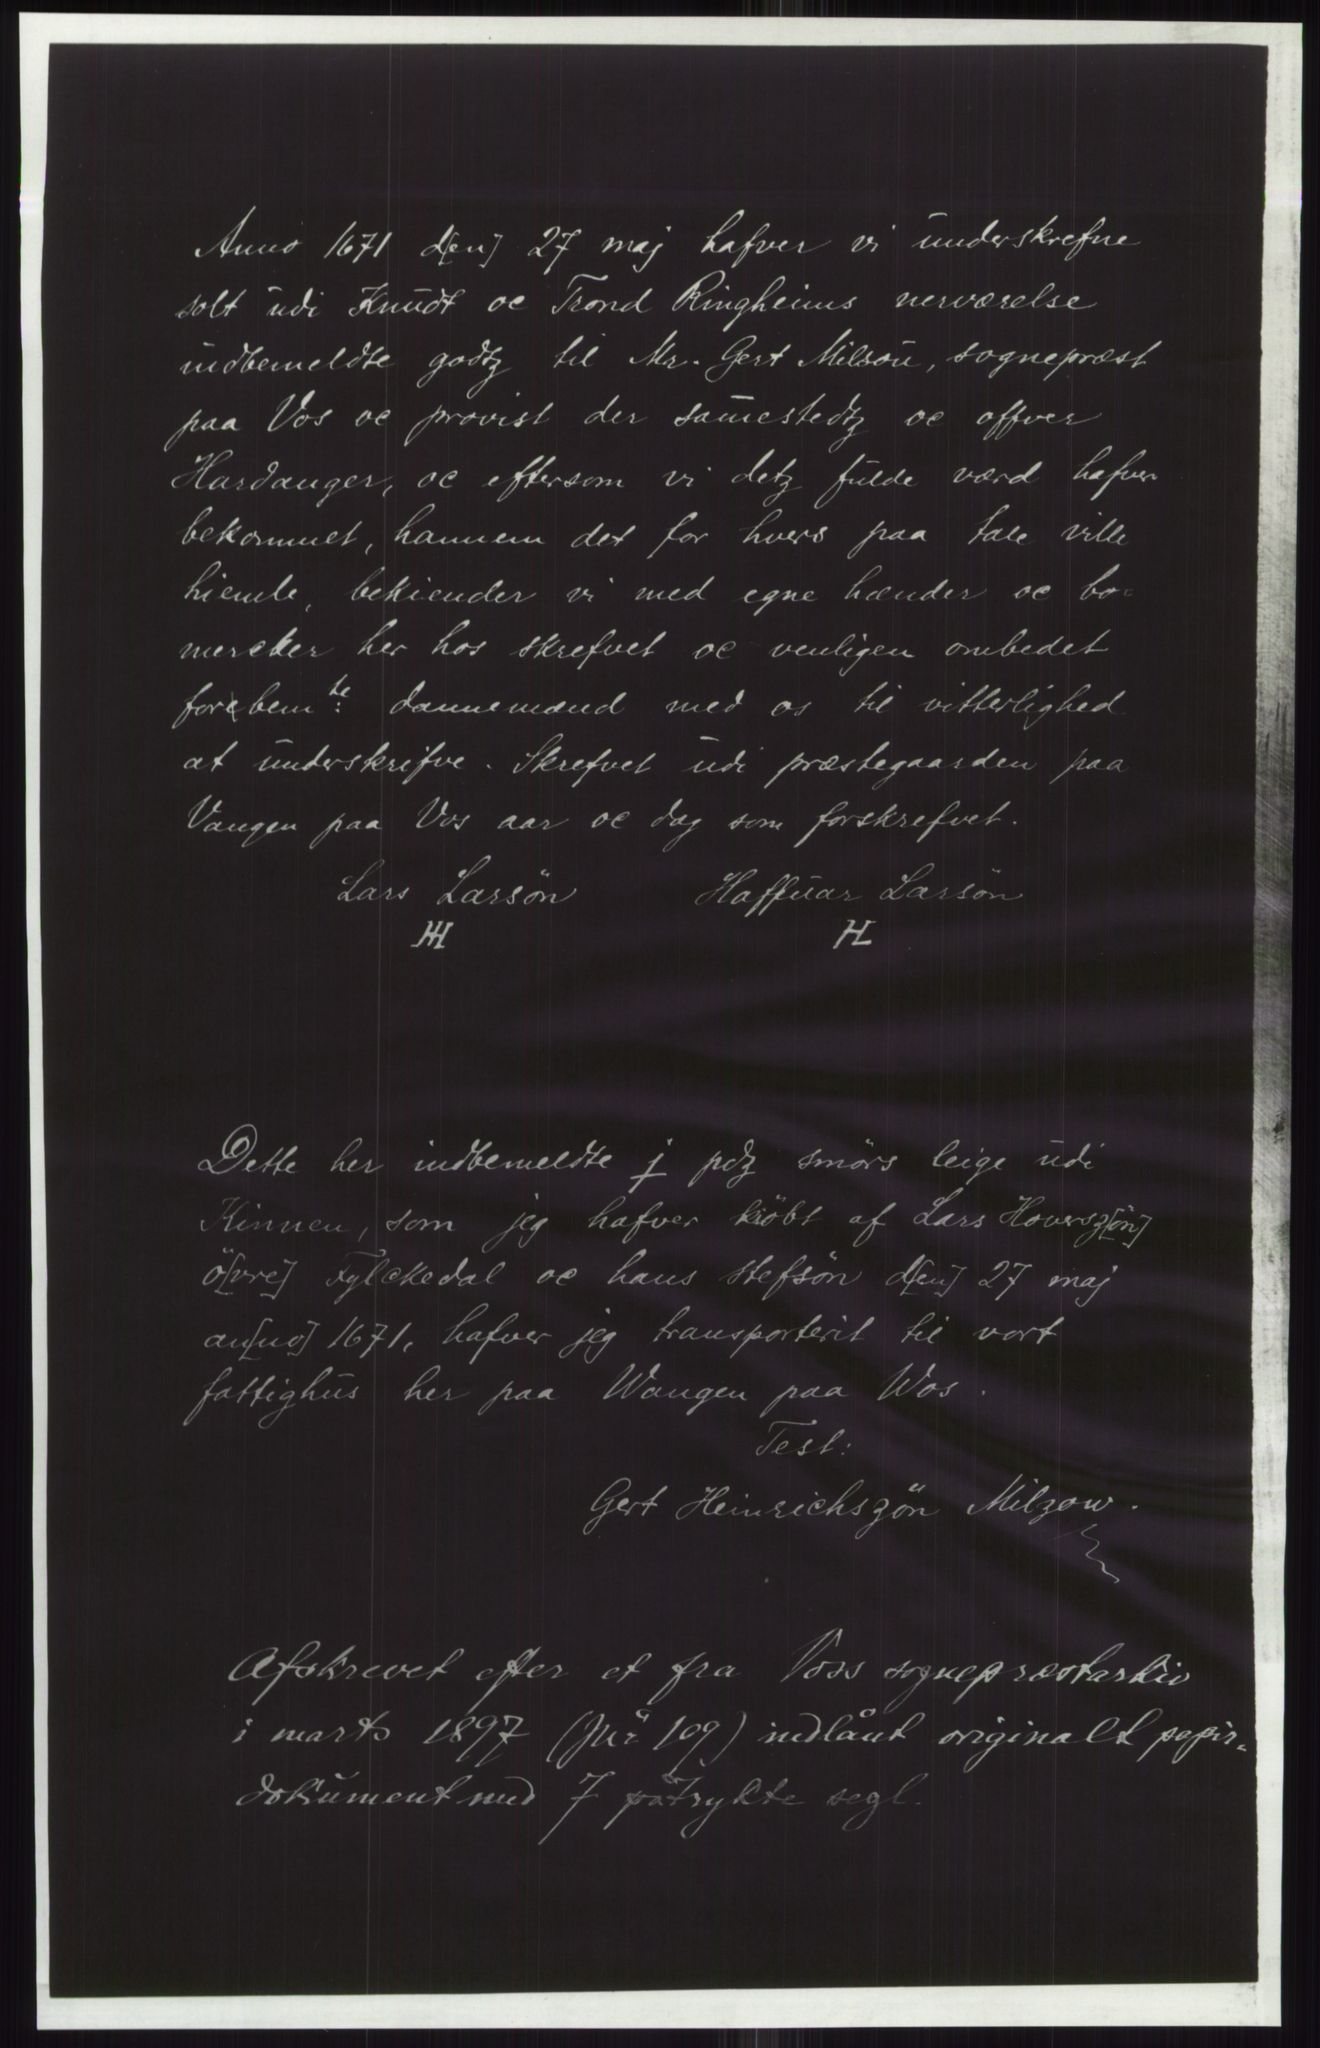 Anno 1671 d[en] 27 maj hafver vi underskrefne
solt udi Knudt oc Trond Ringheims nerværelse
indbemeldte godtz til Mr. Gert Milsou, sognepræst
paa Vos oc provist der samestedtz oc offver
Hardanger, oc eftersom vi detz fulde værd hafver
bekommet, hannem det for hvers paa tale ville
hiemle, bekiender vi med egne hænder oc bo-
mercker her hos skrefvet oc venligen ombedet
forbemte: dannemænd med os til vitterlighed
at underskrifve. Skrefvet udi præstegaarden paa
Vangen paa Vos aar oc dag som forskrefvet.
Lars Larsön Haffuar Larsön
HH HL
Dette her indbemeldte j pdz smörs leige udi
Kinnen, som jeg hafver kiöbt af Lars Hoversz[ön]
ö[vre] Fylckedal oc hans stefsön d[en] 27 maj
an[no] 1671, hafver jeg transporterit til vort
fattighus her paa Wangen paa Wos.
Test:
Gert Heinrichszön Milzow.
Afskrevet efter et fra Voss sognepræstarkiv
i marts 1897 (Jnr 109) indlånt originalt papir-
dokument med 7 påtrykte segl.